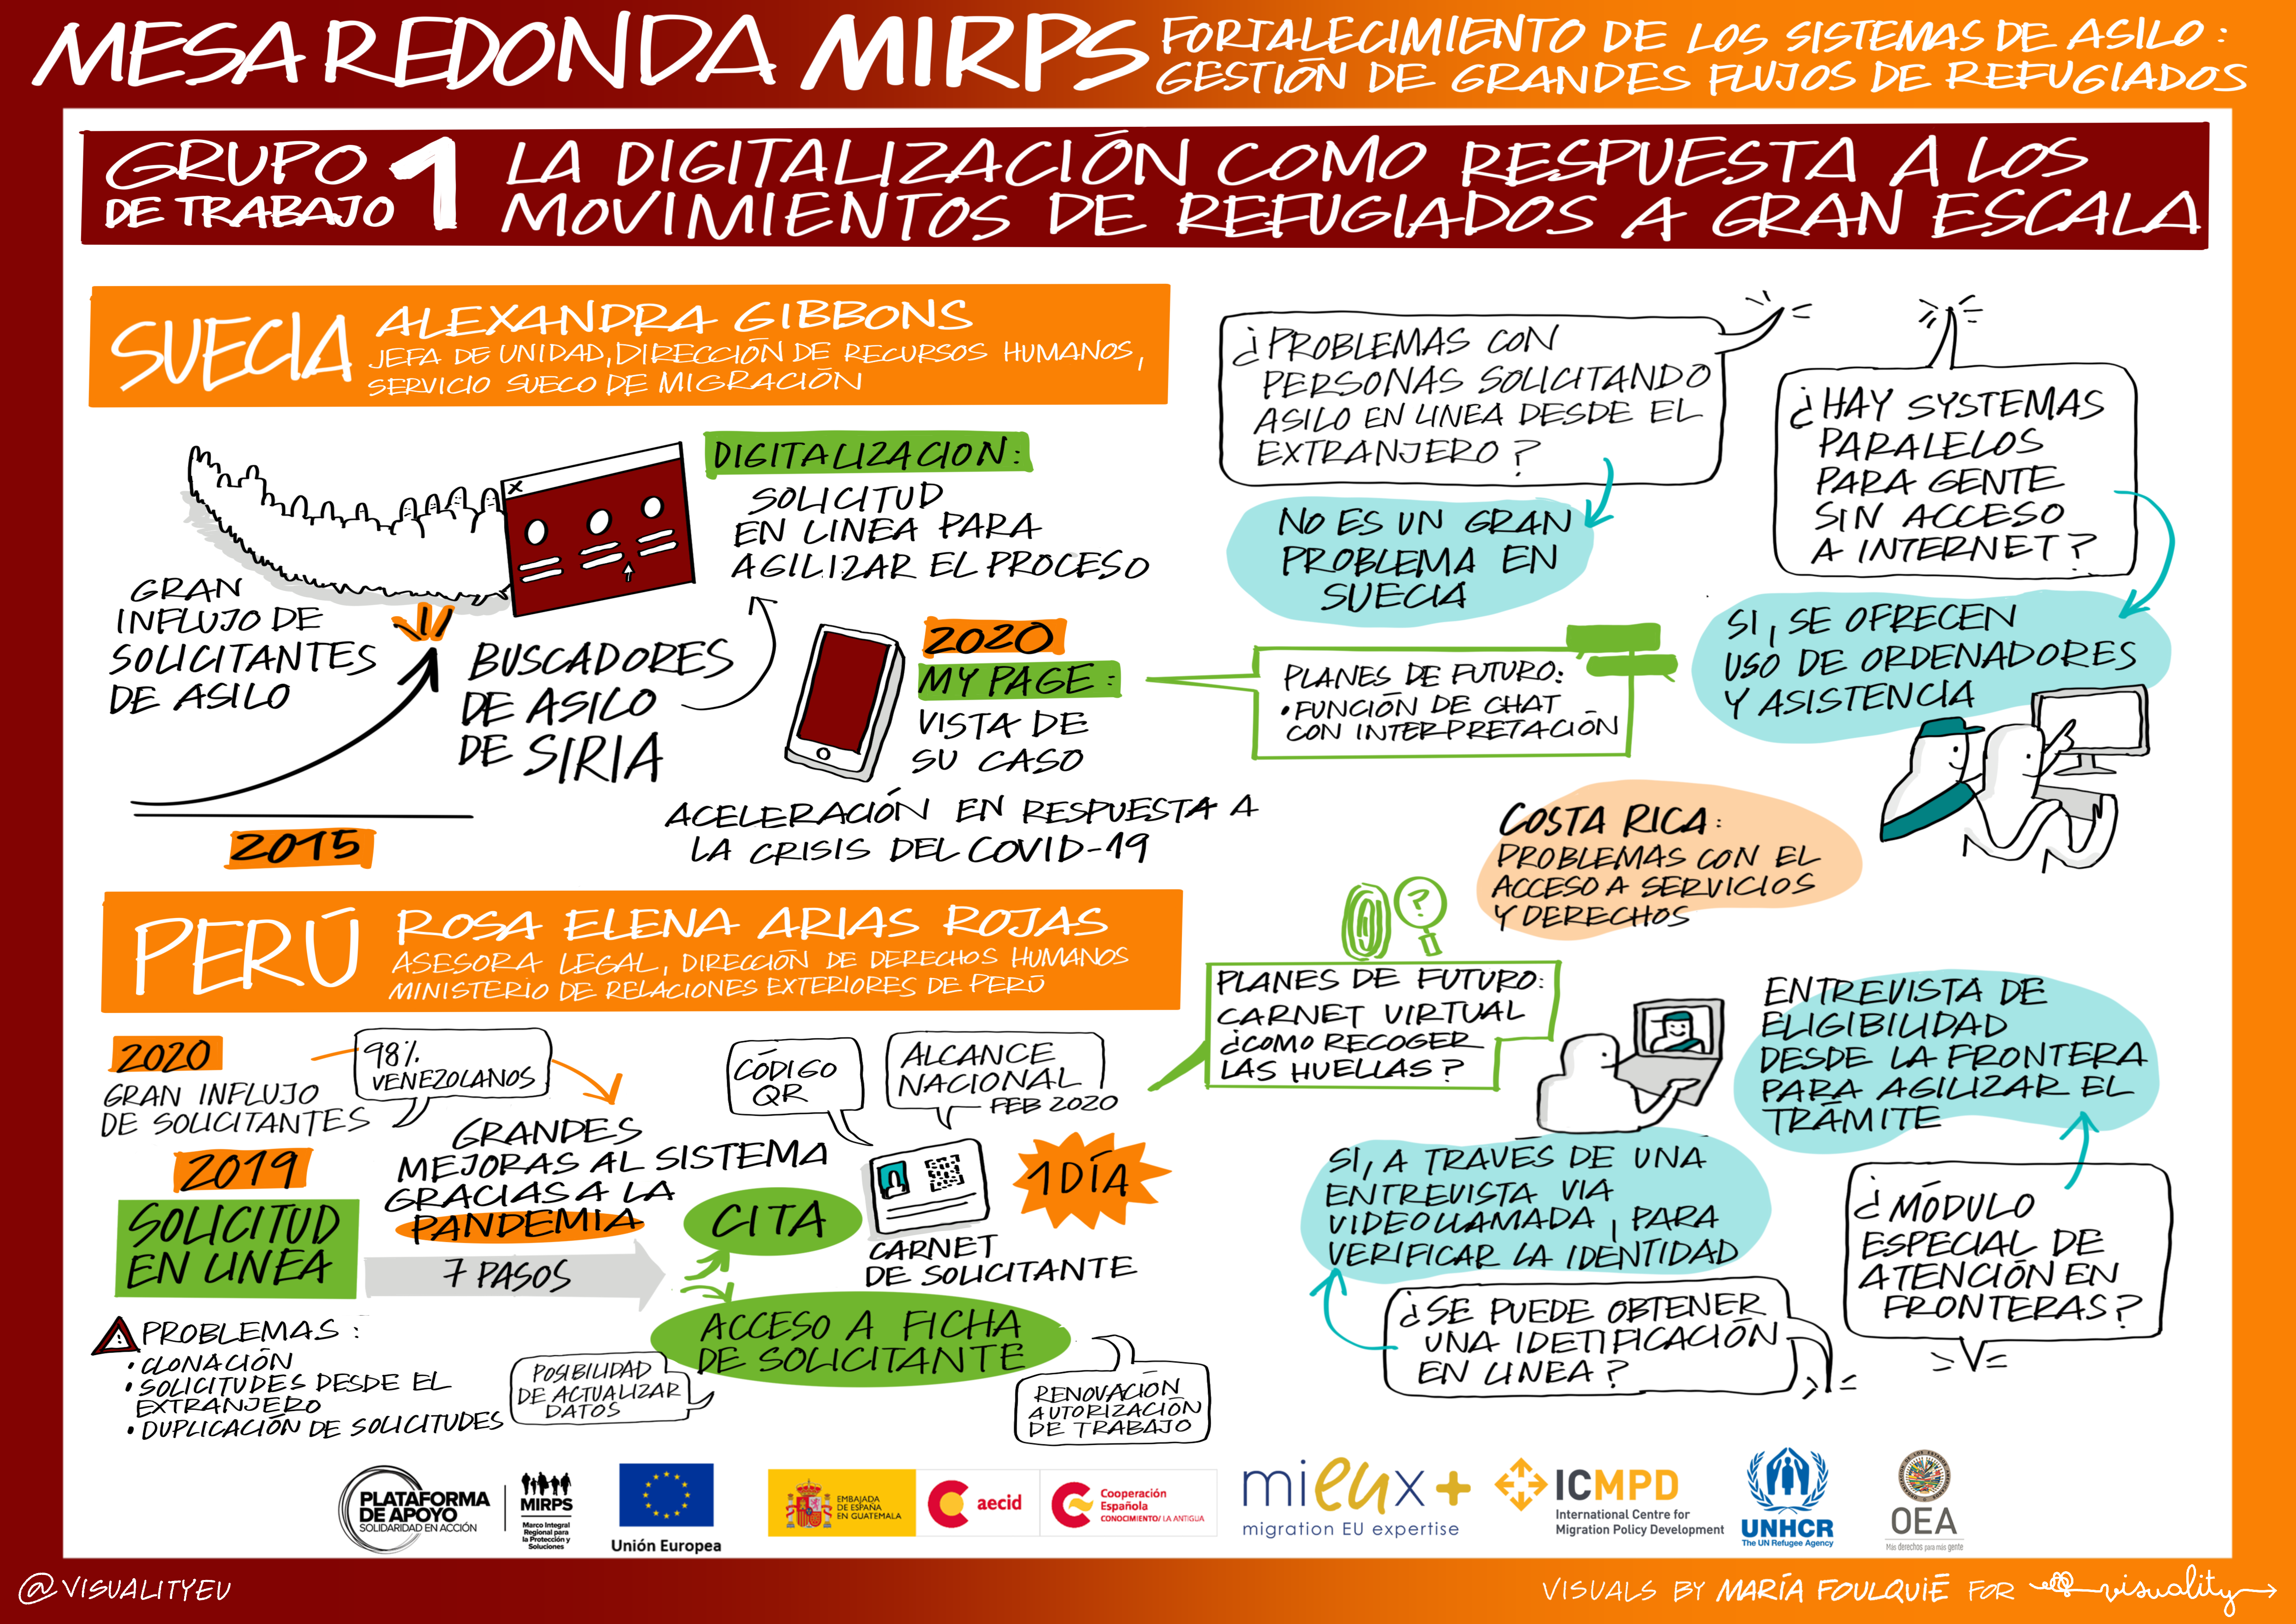 MESA REDONDA MIRPS
FORTALECIMIENTO DE LOS SISTEMAS DE ASILO:
GESTIÓN DE GRANDES FLUJOS DE REFUGIADOS
GRUPO
DE TRABAJO 1
LA DIGITALIZACIÓN COMO RESPUESTA A LOS
MOVIMIENTOS DE REFUGIADOS A GRAN ESCALA
SUECIA
ALEXANDRA GIBBONS
JEFA DE UNIDAD, DIRECCIÓN DE RECURSOS HUMANOS,
SERVICIO SUECO DE MIGRACIÓN
GRAN
INFLUJO DE
SOLICITANTES
DE ASILO
2015
BUSCADORES
DE ASILO
DE SIRIA
X
DIGITALIZACION:
SOLICITUD
EN LINEA PARA
AGILIZAR EL PROCESO
2020
MY PAGE:
VISTA DE
SU CASO
ACELERACIÓN EN RESPUESTA A
LA CRISIS DEL COVID-19
PLANES DE FUTURO:
• FUNCIÓN DE CHAT
CON INTERPRETACIÓN
¿PROBLEMAS CON
PERSONAS SOLICITANDO
ASILO EN LINEA DESDE EL
EXTRANJERO?
NO ES UN GRAN
PROBLEMA EN
SUECIA
¿HAY SYSTEMAS
PARALELOS
PARA GENTE
SIN ACCESO
A INTERNET?
SI, SE OFRECEN
USO DE ORDENADORES
Y ASISTENCIA
COSTA RICA:
PROBLEMAS CON EL
ACCESO A SERVICIOS
Y DERECHOS
PERÚ
ROSA ELENA ARIAS ROJAS
ASESORA LEGAL, DIRECCIÓN DE DERECHOS HUMANOS
MINISTERIO DE RELACIONES EXTERIORES DE PERÚ
2020
GRAN INFLUJO
DE SOLICITANTES
98%
VENEZOLANOS
GRANDES
MEJORAS AL SISTEMA
GRACIAS A LA
PANDEMIA
2019
SOLICITUD
EN LINEA
7 PASOS
CITA
ACCESO A FICHA
DE SOLICITANTE
CÓDIGO
QR
ALCANCE
NACIONAL
FEB 2020
CARNET
DE SOLICITANTE
1 DÍA
PROBLEMAS:
• CLONACIÓN
• SOLICITUDES DESDE EL
EXTRANJERO
• DUPLICACIÓN DE SOLICITUDES
POSIBILIDAD
DE ACTUALIZAR
DATOS
RENOVACIÓN
AUTORIZACIÓN
DE TRABAJO
?
PLANES DE FUTURO:
CARNET VIRTUAL
¿COMO RECOGER
LAS HUELLAS?
ENTREVISTA DE
ELIGIBILIDAD
DESDE LA FRONTERA
PARA AGILIZAR EL
TRÁMITE
¿MÓDULO
ESPECIAL DE
ATENCIÓN EN
FRONTERAS?
SI, A TRAVÉS DE UNA
ENTREVISTA VIA
VIDEOLLAMADA, PARA
VERIFICAR LA IDENTIDAD
¿SE PUEDE OBTENER
UNA IDETIFICACIÓN
EN LINEA?
PLATAFORMA
DE APOYO
SOLIDARIDAD EN ACCIÓN
MIRPS
Marco Integral
Regional para
la Protección y
Soluciones
Unión Europea
EMBAJADA
DE ESPAÑA
EN GUATEMALA
aecid
Cooperación
Española
CONOCIMIENTO/LA ANTIGUA
mieux+
migration EU expertise
ICMPD
International Centre for
Migration Policy Development
UNHCR
The UN Refugee Agency
OEA
Más derechos para más gente
@VISUALITYEU
VISUALS BY MARÍA FOULQUIÉ FOR visuality